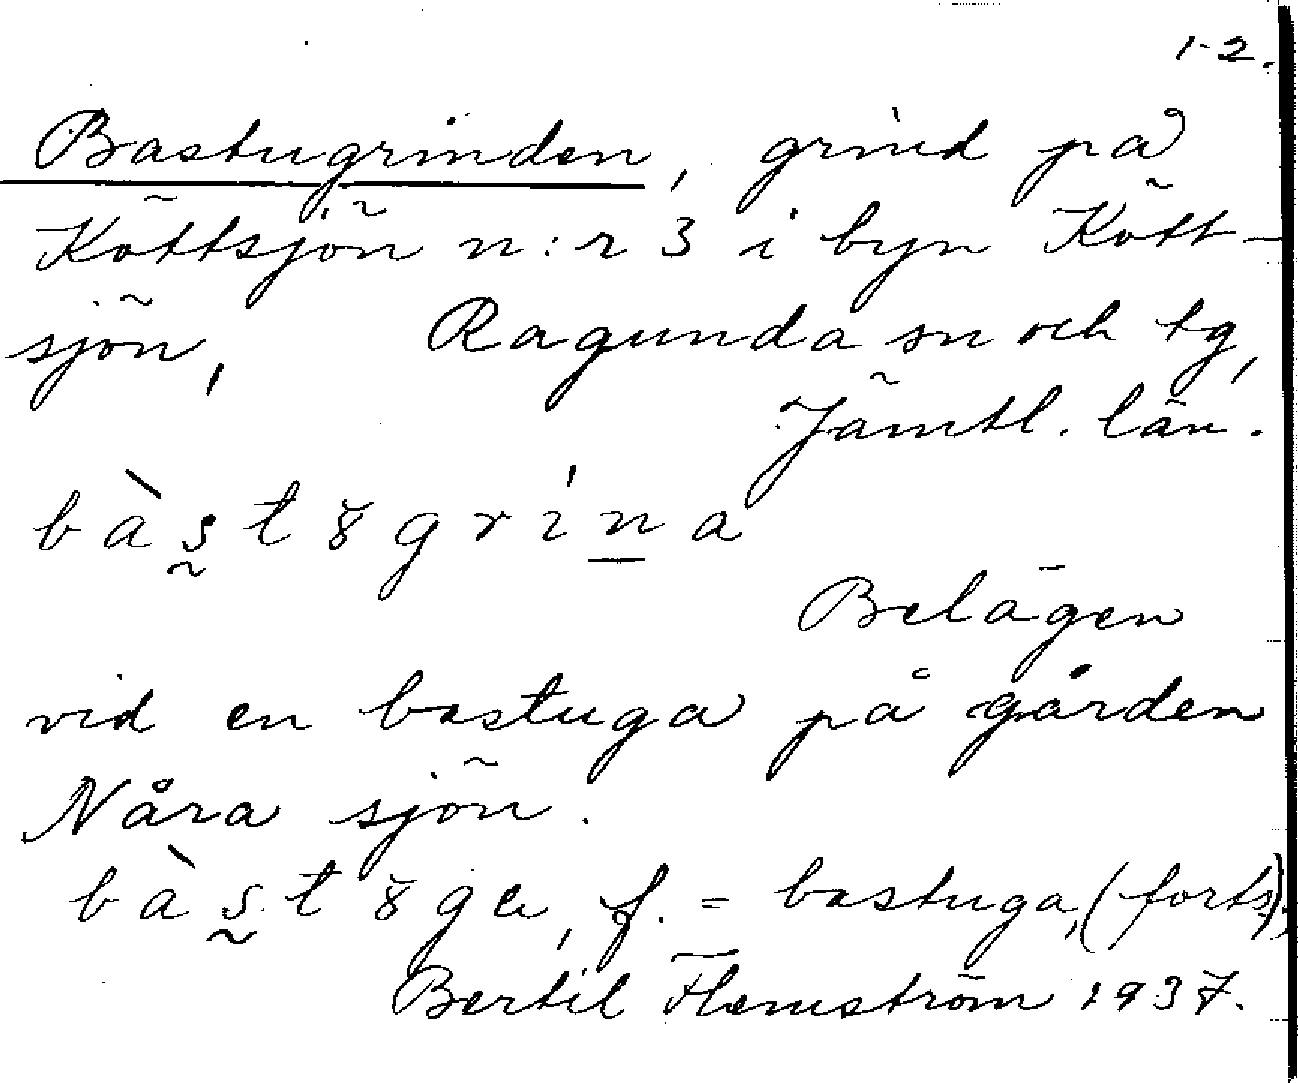 1-2.
Bastugrinden, grind på
Köttsjön n:r 3 i byn Kött-
sjön, Ragunda sn och tg,
Jämtl. län.
bàs̰tȣgrina
Belägen
vid en bastuga på gården
Nåra sjön.
bàs̰tȣga, f. = bastuga, (forts)
Bertil Flemström 1937.